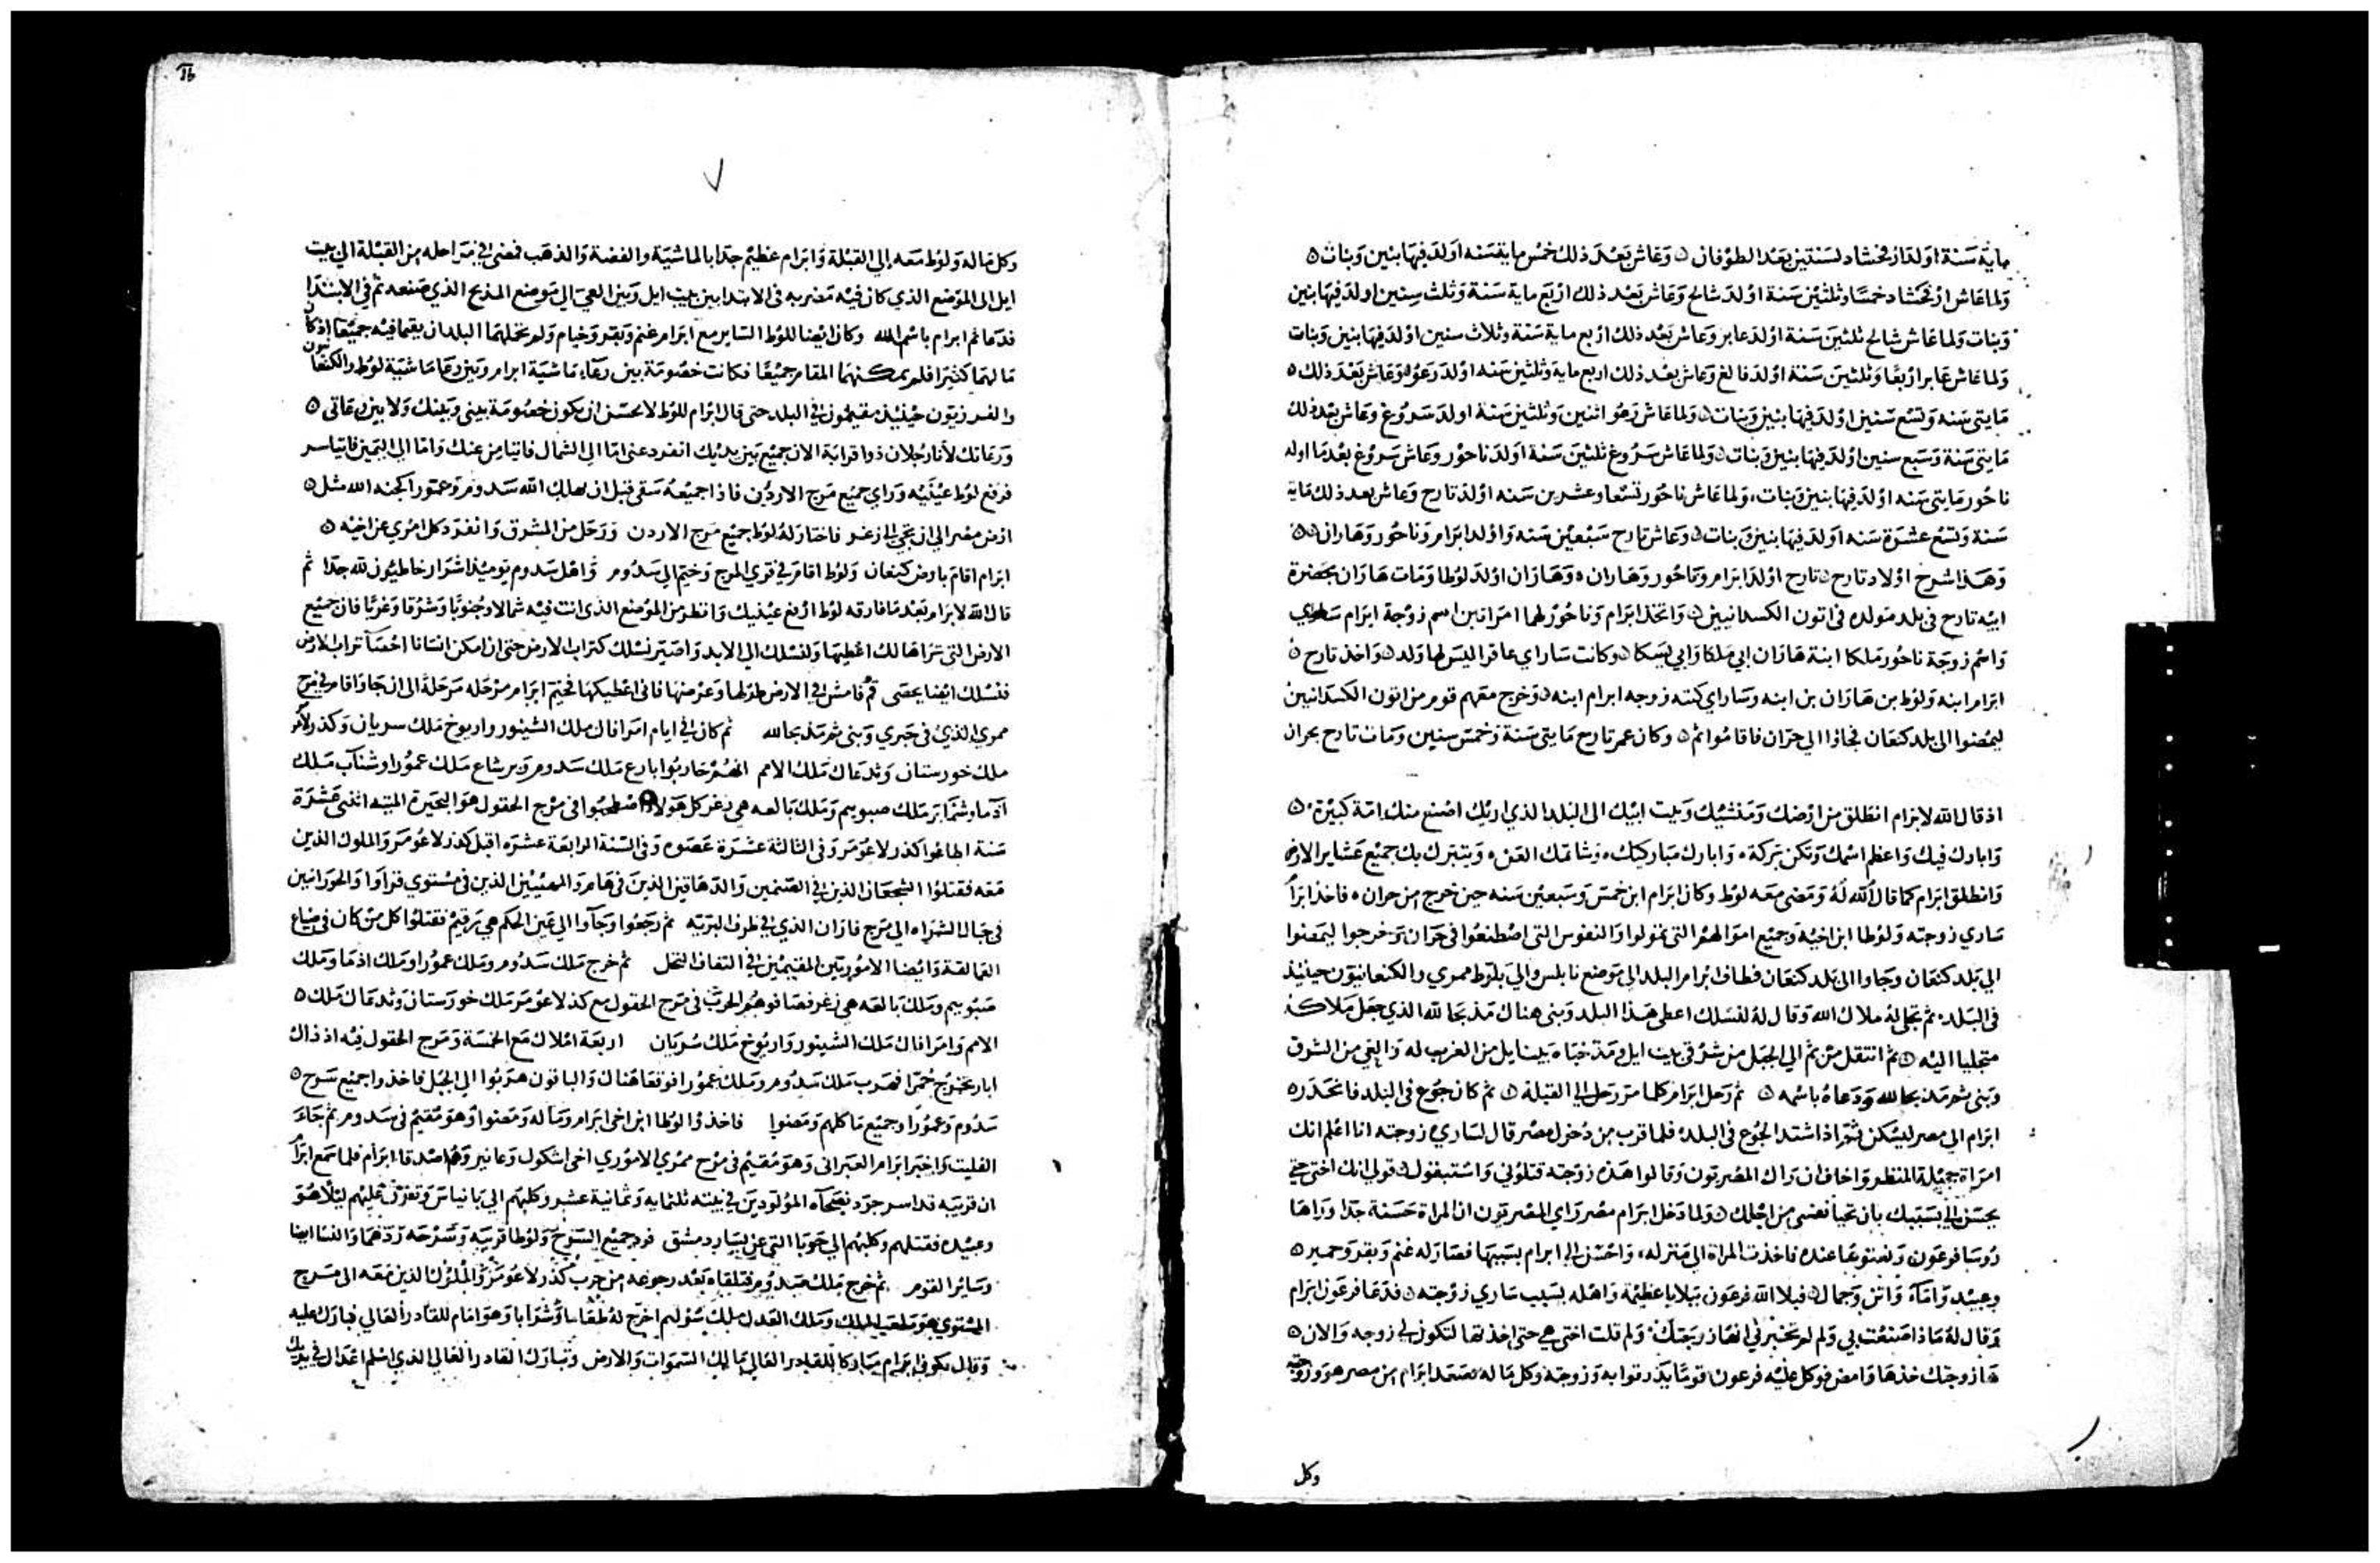 ماية سنة اولد ارفخشاد لسنتين بعد الطوفان ٥ وعاش بعد ذلك خمس ماية سنه اولد فيها بنين وبنات ٥
ولما عاش ارفخشاد خمسا وثلثين سنة اولد شالح وعاش بعد ذلك اربع ماية سنة وثلث سنين اولد فيها بنين
وبنات ولما عاش شالح ثلثين سنة اولد عابر وعاش بعد ذلك اربع ماية سنة وثلاث سنين اولد فيها بنين وبنات
ولما عاش عابر اربعا وثلثين سنة اولد فالغ وعاش بعد ذلك اربع ماية وثلثين سنه اولد رعو وعاش بعد ذلك ٥
مايتى سنه وتسع سنين اولد فيها بنين وبنات ٥ ولما عاش رعو اثنين وثلثين سنة اولد سروغ وعاش بعد ذلك
مايتى سنة وسبع سنين اولد فيها بنين وبنات ٥ ولما عاش سروغ ثلثين سنة اولد ناحور وعاش سروغ بعد ما اولد
ناحور مايتى سنه اولد فيها بنين وبنات ولما عاش ناحور تسعا وعشرين سنه اولد تارح وعاش بعد ذلك ماية
سنة وتسع عشرة سنه اولد فيها بنين وبنات ٥ وعاش تارح سبعين سنه واولد ابرام وناحور وهاران ٥٥
وهذا شرح اولاد تارح ٥ تارح اولد ابرام وناحور وهاران ٥ وهاران اولد لوطا ومات هاران بحضرة
ابيه تارح فى بلد مولده فى اتون الكسدانيين ٥ واتخذ ابرام وناحور لهما امراتين اسم زوجة ابرام ساراي
واسم زوجة ناحور ملكا ابنة هاران ابي ملكا وابي يسكا ٥ وكانت ساراي عاقرا ليس لها ولد ٥ واخذ تارح ٥
ابرام ابنه ولوط بن هاران بن ابنه وساراي كنته زوجه ابرام ابنه ٥ وخرج معهم قوم من اتون الكسدانيين
ليمضوا الى بلد كنعان فجاوا الي حران فاقاموا ثم ٥ وكان عمر تارح مايتى سنة وخمس سنين ومات تارح بحران
اذ قال الله لابرام انطلق من ارضك ومنشيك وبيت ابيك الى البلد الذي اريك اصنع منك امة كبيرة ٥
وابارك فيك واعظم اسمك وتكن بركة وابارك مباركيك وشاتمك العن ويتبرك بك جميع عشاير الارض
وانطلق ابرام كما قال الله له ومضى معه لوط وكان ابرام ابن خمس وسبعين سنه حين خرج من حران ٥ فاخذ ابرام
ساري زوجته ولوطا ابن اخيه وجميع اموالهم التى تمولوا والنفوس التى اصطنعوا فى حران وخرجوا ليمضوا
الي بلد كنعان وجاوا الى بلد كنعان فطاف ابرام البلد الى موضع نابلس والي بلوط ممري والكنعانيون حينيذ
فى البلد ثم تجلي له ملاك الله وقال له لنسلك اعطي هذا البلد وبنى هناك مذبحا لله الذي جعل ملاكه
متجليا اليه ٥ ثم انتقل من ثم الي الجبل من شرقي بيت ايل ومد خباه بيت ايل من الغرب له والعي من الشرق
وبنى ثم مذبحا لله ودعاه باسمه ٥ ثم رحل ابرام كلما مر رحل الى القبله ٥ ثم كان جوع فى البلد فانحدر ٥
ابرام الي مصر ليسكن ثم اذ اشتد الجوع فى البلد فلما قرب من دخول مصر قال لساري زوجته انا اعلم انك
امراة جميلة المنظر واخاف ان راك المصريون وقالوا هذه زوجته قتلوني واستبقوك قولي انك اختى حتي
يحسن الي بسببك بان تحيا نفسى من اجلك ٥ ولما دخل ابرام مصر راي المصريون ان المراة حسنة جدا وراها
روسا فرعون ونعتوها عنده فاخذت المراة الى منزله واحسن الى ابرام بسببها فصار له غنم وبقر وحمير ٥
وعبيد واماء واتن وجمال ٥ فبلا الله فرعون ببلايا عظيمة واهله بسبب ساري زوجته ٥ فدعا فرعون ابرام
وقال له ماذا صنعت بي ولم لم تخبرني انها زوجتك ولم قلت اختى هي حتى اخذتها لتكون لى زوجه والان ٥
ها زوجتك خذها وامض فوكل عليه فرعون قوما يذرقوا به وزوجته وكل ماله فصعد ابرام من مصر هو وزوجته
وكل
وكل ماله ولوط معه الي القبلة وابرام عظيم جدا بالماشية والفضة والذهب فمضى في مراحله من القبلة الى بيت
ايل الى الموضع الذي كان فيه مضربه فى الابتدا بين بيت ايل وبين العي الي موضع المذبح الذي صنعه ثم في الابتدا
فدعا ثم ابرام باسم الله وكان ايضا للوط الساير مع ابرام غنم وبقر وخيام ولم تحملهما البلد ان يقيما فيه جميعا اذ كان
مالهما كثيرا فلم يمكنهما المقام جميعا فكانت خصومة بين رعاء ماشية ابرام وبين رعا ماشية لوط والكنعانيون
والفرزيون حينيذ مقيمون في البلد حتى قال ابرام للوط لا يحسن ان يكون خصومة بيني وبينك ولا بين رعاتى ٥
ورعاتك لانا رجلان ذوا قرابة الان جميع بين يديك انفرد عنى اما الى الشمال فاتيامن عنك واما الى اليمين فاتياسر
فرفع لوط عينيه وراي جميع مرج الاردن فاذا جميعه سقى قبل ان يهلك الله سدوم وعمورا كجنه الله مثل ٥
ارض مصر الي ان تجي الى زغر فاختار له لوط جميع مرج الاردن ورحل من المشرق وانفرد كل امري عن اخيه ٥
ابرام اقام بارض كنعان ولوط اقام في قري المرج وخيم الي سدوم واهل سدوم يوميذ اشرار خاطيون لله جدا ثم
قال الله لابرام بعد ما فارقه لوط ارفع عينيك وانظر من الموضع الذى انت فيه شمالا وجنوبا وشرقا وغربا فان جميع
الارض التى تراها لك اعطيها ولنسلك الي الابد واصير نسلك كتراب الارض حتى ان امكن انسانا احصآ تراب الارض
فنسلك ايضا يحصى قم فامش في الارض طولها وعرضها فانى اعطيكها فخيم ابرام مرحله مرحلة الى ان جا واقام في مرج
ممري الذي فى حبري وبنى ثم مذبحا لله ثم كان في ايام امرافال ملك الشينور واريوخ ملك سريان وكذرلاعومر
ملك خورستان وتدعال ملك الامم انهم حاربوا بارع ملك سدوم وبرشاع ملك عمورا وشناب ملك
اذما وشمابر ملك صبوييم وملك بالعه هي زغر كل هولا اصطحبوا فى مرج الحقول هو البحيرة الميته اثنى عشرة
سنة اطاعوا كذرلاعومر وفى الثالثة عشرة عصوه وفى السنة الرابعة عشره اقبل كذرلاعومر والملوك الذين
معه فقتلوا الشجعان الذين في الصنمين والدهاقين الذين فى هام والمهيبين الذين فى مستوي قراوا والحورانيين
فى جبال الشراه الي مرج فاران الذي في طرف البريه ثم رجعوا وجآوا الى عين الحكم هي رقيم فقتلوا كل من كان فى ضياع
العمالقة وايضا الاموريين المقيمين في التفاف النخل ثم خرج ملك سدوم وملك عمورا وملك اذما وملك
صبوييم وملك بالعه هي زغر فصافوهم الحرب فى مرج الحقول مع كذرلاعومر ملك خورستان وتدعال ملك ٥
الامم وامرافال ملك الشينور واريوخ ملك سريان اربعة املاك مع الخمسة ومرج الحقول فيه اذ ذاك
ابار تخرج خمرا فهرب ملك سدوم وملك عمورا فوقعا هناك والباقون هربوا الي الجبل فاخذوا جميع سرح ٥
سدوم وعمورا وجميع ماكلهم ومضوا فاخذوا لوطا ابن اخى ابرام وماله ومضوا وهو مقيم فى سدوم ثم جاء
الفليت واخبر ابرام العبرانى وهو مقيم فى مرج ممري الاموري اخى اشكول وعانير وهم اصدقا ابرام فلما سمع ابرام
ان قريبه قد اسر جرد نصحآه المولودين في بيته ثلثمايه وثمانية عشر وكلبهم الي بانياس وتفرق عليهم ليلا هو
وعبيده فقتلهم وكلبهم الي حوبا التى عن يسار دمشق فرد جميع السرح ولوطا قريبه وسرحه ردهما والنسا ايضا
وساير القوم ثم خرج ملك سدوم فتلقاه بعد رجوعه من حرب كذرلاعومر والملوك الذين معه الى مرج
المستوي هو ملعب الملك وملك العدل ملك شوليم اخرج له طعاما وشرابا وهو امام للقادر العالي فبارك عليه
وقال يكون ابرام مباركا للقادر العالي مالك السموات والارض وتبارك القادر العالي الذي اسلم اعداك في يديك